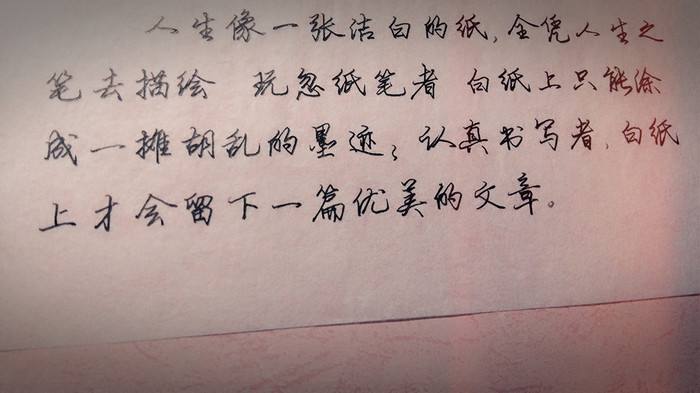 人生像一张洁白的纸,全凭人生之
笔去描绘 玩忽纸笔者 白纸上只能涂
成一摊胡乱的墨迹;认真书写者,白纸
上才会留下一篇优美的文章。